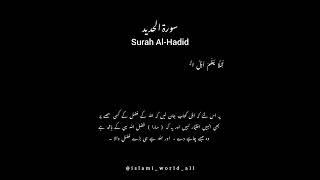 سورة الحديد
Surah Al-Hadid
لِّئَلَّا يَعْلَمَ أَهْلُ الْ
یہ اس لئے کہ اہل کتاب جان لیں کہ اللہ کے فضل کے کسی حصے پر
بھی انہیں اختیار نہیں اور یہ کہ ( سارا ) فضل اللہ ہی کے ہاتھ ہے
وہ جسے چاہے دے ، اور اللہ ہے ہی بڑے فضل والا ۔
@islami_world_all